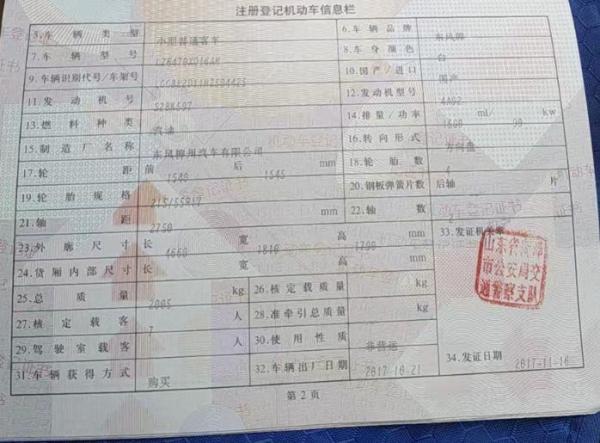 注册登记机动车信息栏
5.车辆类型 小型普通客车 6.车辆品牌 东风牌
7.车辆型号 8.车身颜色 白
9.车辆识别代号/车架号 10.国产/进口 国产
11.发动机号 12.发动机型号 4A92
13.燃料种类 汽油 14.排量/功率 ml/ kw
15.制造厂名称 东风柳州汽车有限公司 16.转向形式 方向盘
17.轮距 前 1540 后 1545 mm 18.轮胎数 4
19.轮胎规格 215/55R17 20.钢板弹簧片数 后轴 片
21.轴距 2750 mm 22.轴数 2
23.外廓尺寸 长 4660 宽 1810 高 mm 33.发证机关章
24.货厢内部尺寸 长 宽 高 mm
25.总质量 2005 kg 26.核定载质量 kg
27.核定载客 7 人 28.准牵引总质量 kg
29.驾驶室载客 人 30.使用性质 非营运
31.车辆获得方式 购买 32.车辆出厂日期 2017-10-21 34.发证日期 2017-11-16
市公安局交
通警察支队
第2页